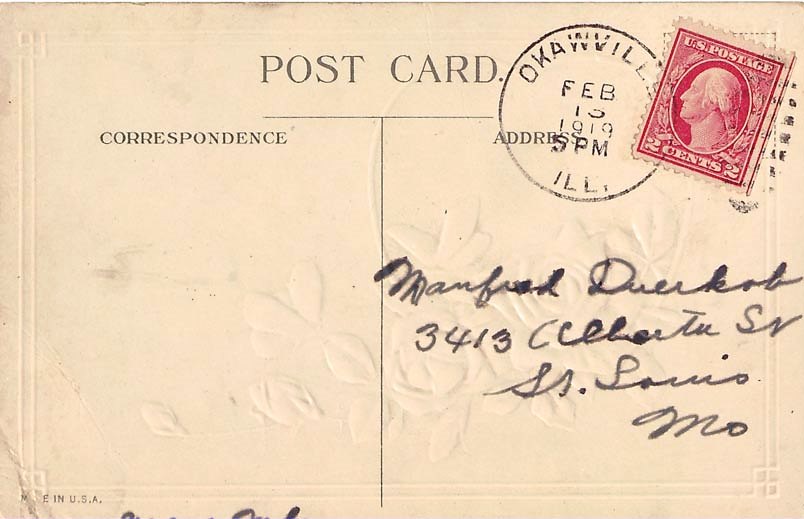 POST CARD.
CORRESPONDENCE
ADDRESS
OKAWVILL
FEB
13
1919
5 PM
ILL.
U.S. POSTAGE
2 CENTS 2
Manfred Duerkob
3413 Alberta St
St. Louis
Mo
E IN U.S.A.